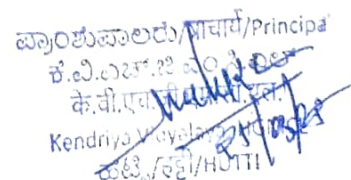 ಪ್ರಾಂಶುಪಾಲರು/प्राचार्य/Principal
ಕೆ.ವಿ.ಎಚ್.ಜಿ.ಎಂ.ಸಿ.ಎಲ್
के.वी.एच.
Kendriya Vidyalaya
ಹಟ್ಟಿ/हट्टी/HUTTI